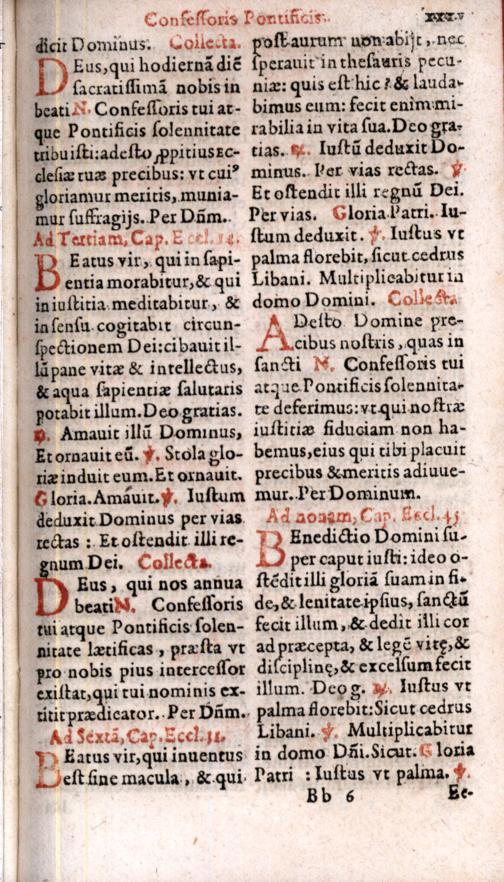 Confessoris Pontificis.
dicit Dominus. Collecta.
DEus, qui hodiernā diē
sacratissimā nobis in
beati N. Confessoris tui at-
que Pontificis solennitate
tribuisti: adesto ꝓpitius Ec-
clesiæ tuæ precibus: vt cuiꝰ
gloriamur meritis, munia-
mur suffragijs. Per Dñm.
Ad Tertiam, Cap. Eccl. 14.
BEatus vir, qui in sapi-
entia morabitur, & qui
in iustitia meditabitur, &
in sensu cogitabit circun-
spectionem Dei: cibauit il-
lū pane vitæ & intellectus,
& aqua sapientiæ salutaris
potabit illum. Deo gratias.
℟. Amauit illū Dominus,
Et ornauit eū. ℣. Stola glo-
riæ induit eum. Et ornauit.
Gloria. Amauit. ℣. Iustum
deduxit Dominus per vias
rectas : Et ostendit illi re-
gnum Dei. Collecta.
DEus, qui nos annua
beati N. Confessoris
tui atque Pontificis solen-
nitate lætificas, præsta vt
pro nobis pius intercessor
existat, qui tui nominis ex-
titit prædicator. Per Dñm.
Ad Sextā, Cap. Eccl. 31.
BEatus vir, qui inuentus
est sine macula, & qui
post aurum non abijt, nec
sperauit in thesauris pecu-
niæ: quis est hic? & lauda-
bimus eum: fecit enim mi-
rabilia in vita sua. Deo gra-
tias. ℟. Iustū deduxit Do-
minus. Per vias rectas. ℣.
Et ostendit illi regnū Dei.
Per vias. Gloria Patri. Iu-
stum deduxit. ℣. Iustus vt
palma florebit, sicut cedrus
Libani. Multiplicabitur in
domo Domini. Collecta
ADesto Domine pre-
cibus nostris, quas in
sancti N. Confessoris tui
atque Pontificis solennita-
te deferimus: vt qui nostræ
iustitiæ fiduciam non ha-
bemus, eius qui tibi placuit
precibus & meritis adiuue-
mur. Per Dominum.
Ad nonam, Cap. Eccl. 45.
BEnedictio Domini su-
per caput iusti: ideo o-
stēdit illi gloriā suam in fi-
de, & lenitate ipsius, sanctū
fecit illum, & dedit illi cor
ad præcepta, & legē vitę, &
disciplinę, & excelsum fecit
illum. Deo g. ℟. Iustus vt
palma florebit: Sicut cedrus
Libani. ℣. Multiplicabitur
in domo Dñi. Sicut. Gloria
Patri : Iustus vt palma. ℣.
Bb 6 Ec-